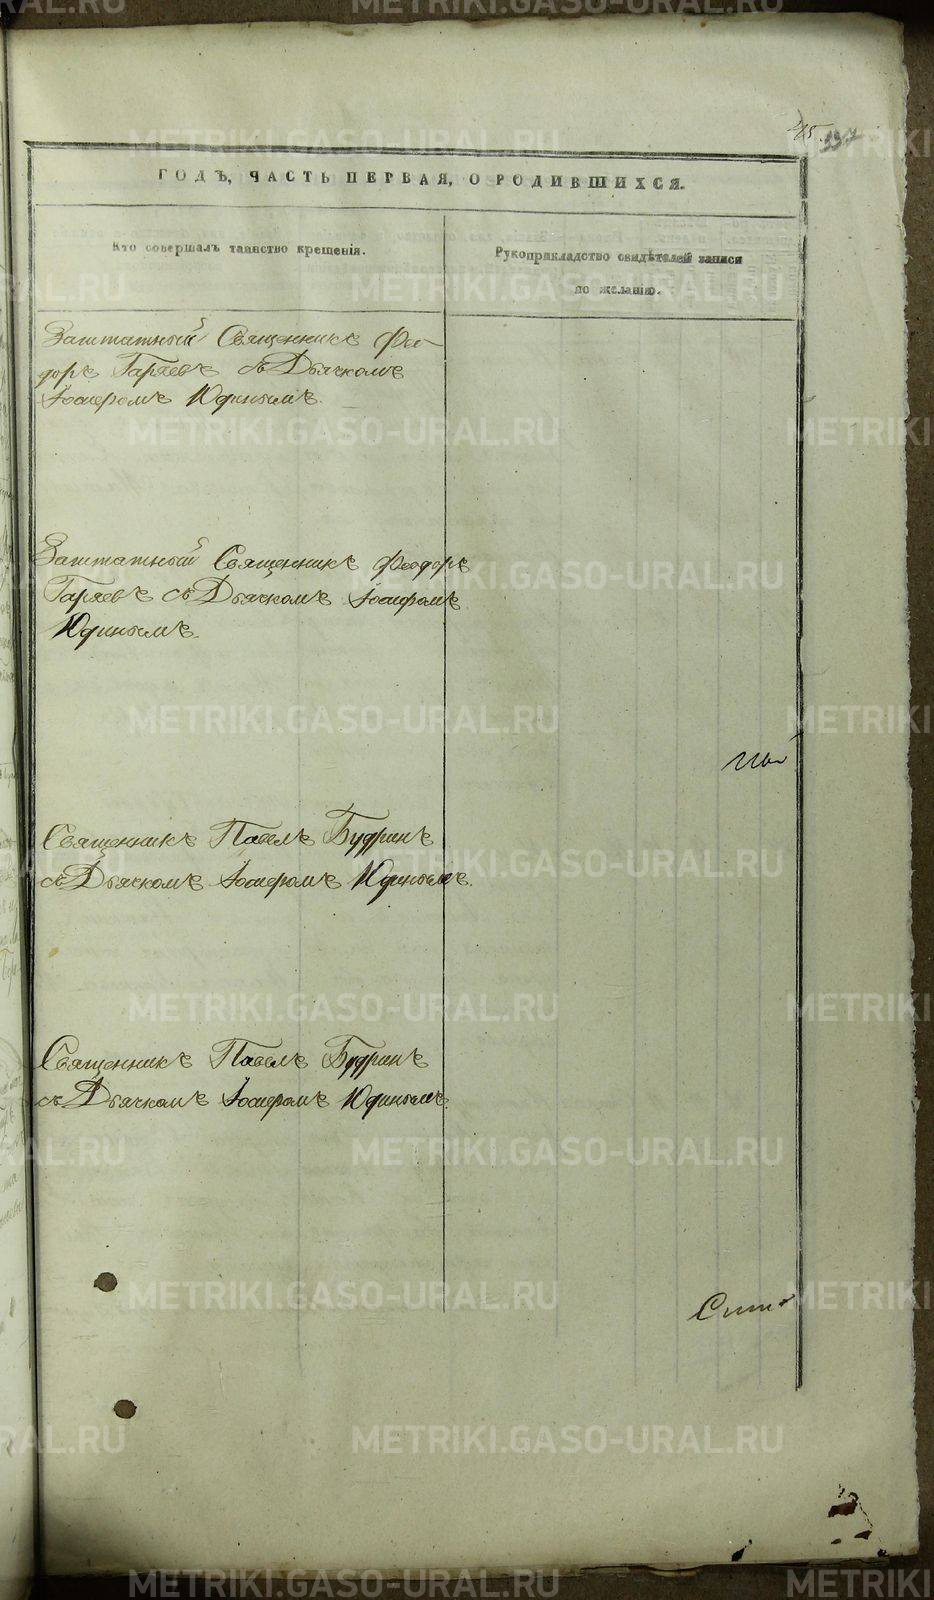 ГОДЪ, ЧАСТЬ ПЕРВАЯ, О РОДИВШИХСЯ.
Кто совершалъ таинство крещенія.
Рукоприкладство свидѣтелей записи
по желанію.
Заштатный Священникъ Фео-
доръ Гаряевъ съ Дьячкомъ
Іосифомъ Юдинымъ.
Заштатный Священникъ Феодоръ
Гаряевъ съ Дьячкомъ Іосифомъ
Юдинымъ.
Священникъ Павелъ Будринъ
съ Дьячкомъ Іосифомъ Юдинымъ.
Священникъ Павелъ Будринъ
съ Дьячкомъ Іосифомъ Юдинымъ.
METRIKI.GASO-URAL.RU